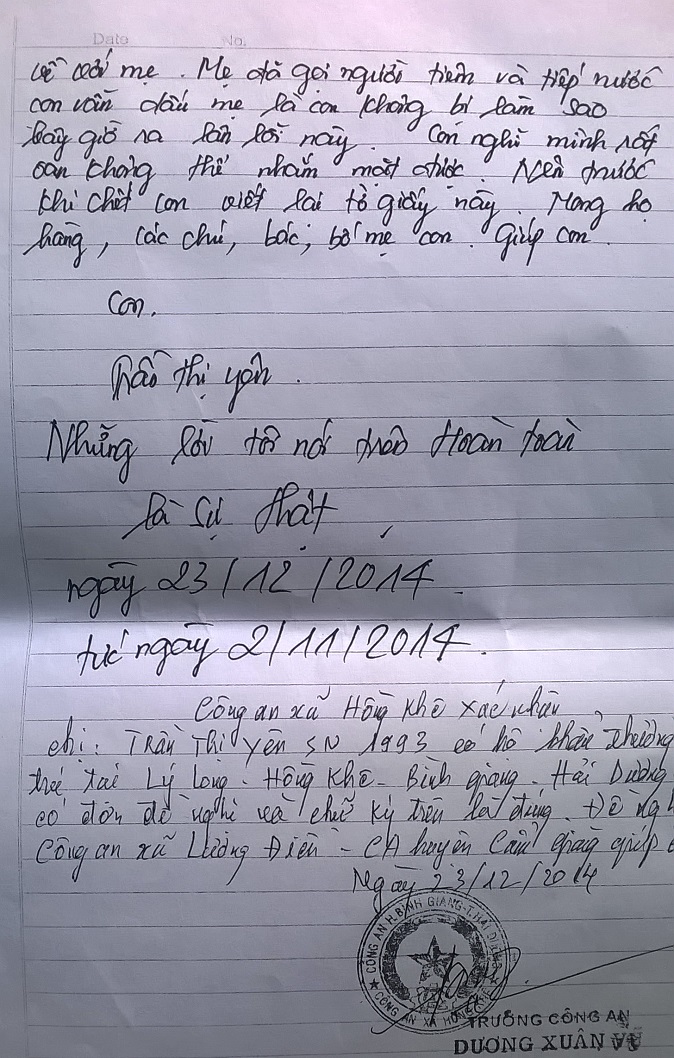 Date No.
về với mẹ. Mẹ đã gọi người tiêm và tiếp nước
con vẫn dấu mẹ là con không bị làm sao
bây giờ ra lần lỡi này. Con nghĩ mình rất
oan không thể nhắm mắt được. Nên trước
khi chết con viết lại tờ giấy này. Mong họ
hàng, các chú, bác, bố mẹ con. Giúp con.
Con.
Trần thị yên.
Những lời tôi nói trên Hoàn toàn
là sự thật
ngày 23/12/2014
tức ngày 2/11/2014.
Công an xã Hồng Khê xác nhận
chị: Trần Thị Yên SN 1993 có hộ khẩu thường
trú tại Lý Long - Hồng Khê - Bình giang - Hải Dương
có đơn đề nghị và chữ ký trên là đúng. Đề ng
Công an xã Lương Điền - CA huyện Cẩm giàng giúp
Ngày 23/12/2014
CÔNG AN H. BÌNH GIANG - T. HẢI DƯƠNG
CÔNG AN XÃ HỒNG KHÊ
TRƯỞNG CÔNG AN
DƯƠNG XUÂN